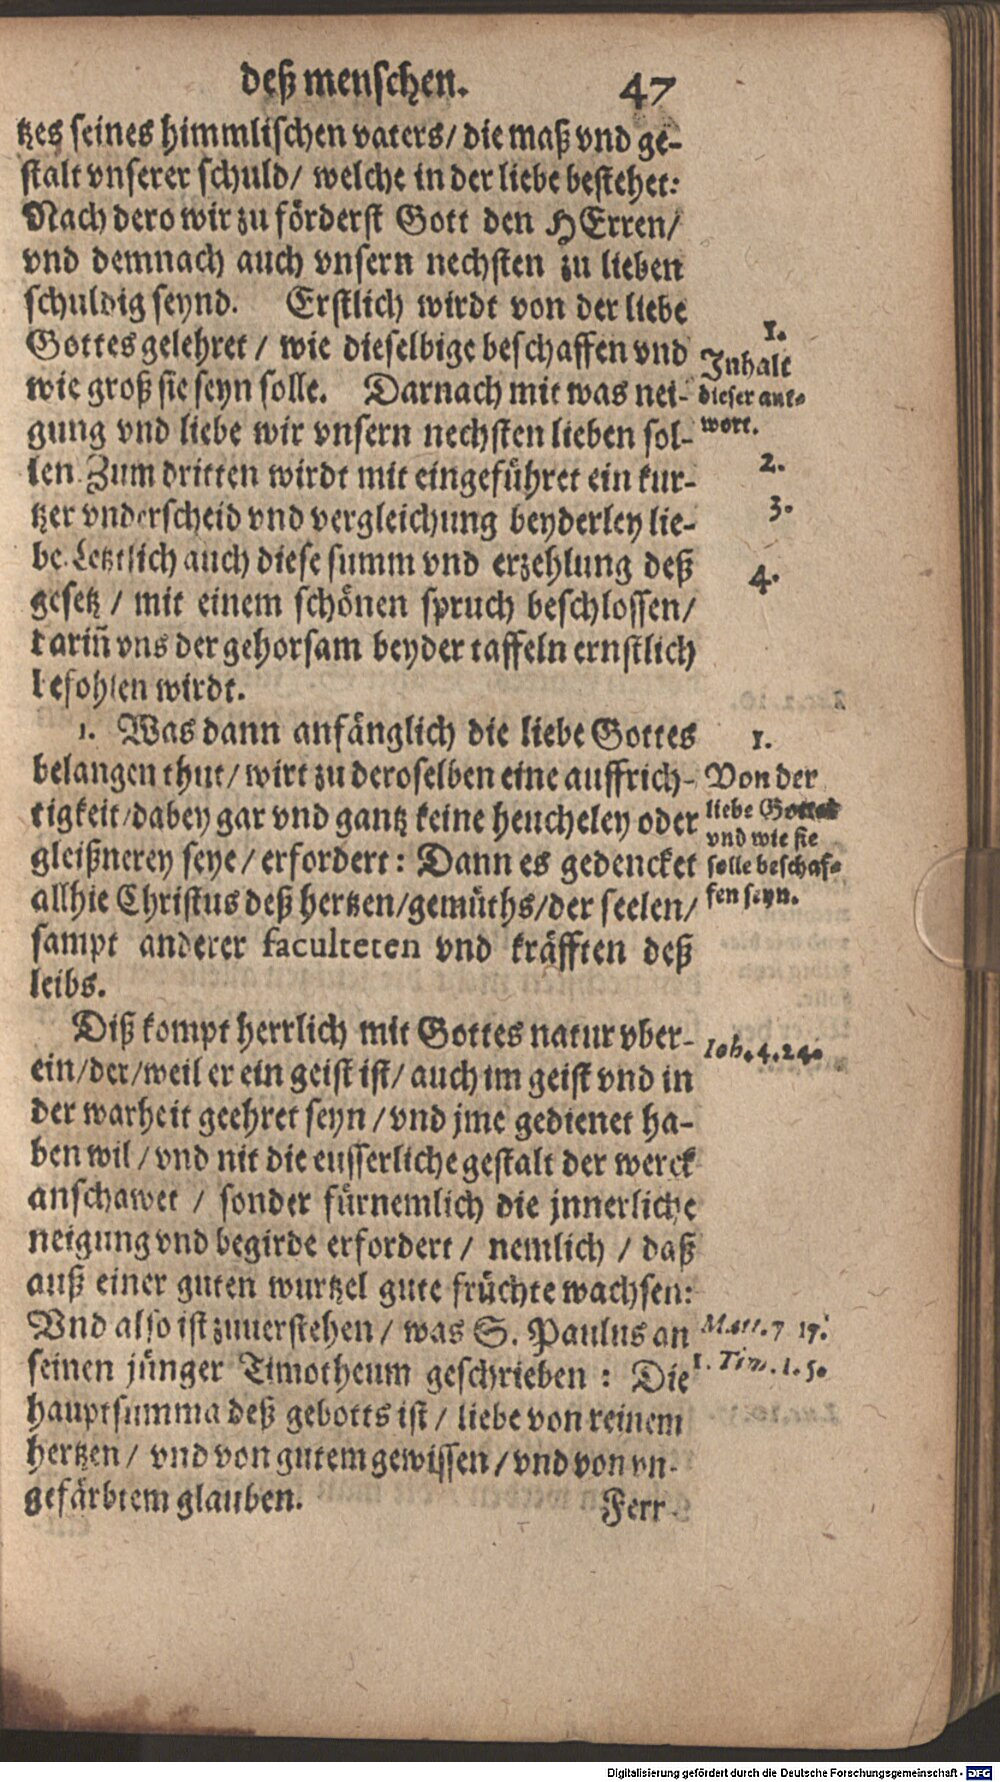 deß menschen. 47
tzes seines himmlischen vaters/ die maß vnd ge-
stalt vnserer schuld/ welche in der liebe bestehet:
Nach dero wir zu förderst Gott den HErren/
vnd demnach auch vnsern nechsten zu lieben
schuldig seynd. Erstlich wirdt von der liebe
Gottes gelehret / wie dieselbige beschaffen vnd
wie groß sie seyn solle. Darnach mit was nei-
gung vnd liebe wir vnsern nechsten lieben sol-
len. Zum dritten wirdt mit eingeführet ein kur-
tzer vnderscheid vnd vergleichung beyderley lie-
be. Letztlich auch diese summ vnd erzehlung deß
gesetz / mit einem schönen spruch beschlossen/
darin̄ vns der gehorsam beyder taffeln ernstlich
befohlen wirdt.
1.
Inhalt
dieser ant-
wort.
2.
3.
4.
1. Was dann anfänglich die liebe Gottes
belangen thut/ wirt zu deroselben eine auffrich-
tigkeit/dabey gar vnd gantz keine heucheley oder
gleißnerey seye/ erfordert: Dann es gedencket
allhie Christus deß hertzen/gemüths/der seelen/
sampt anderer faculteten vnd kräfften deß
leibs.
1.
Von der
liebe Gottes
vnd wie sie
solle beschaf-
fen seyn.
Diß kompt herrlich mit Gottes natur vber-
ein/der/weil er ein geist ist/ auch im geist vnd in
der warheit geehret seyn /vnd jme gedienet ha-
ben wil /vnd nit die eusserliche gestalt der werck
anschawet / sonder fürnemlich die jnnerliche
neigung vnd begirde erfordert / nemlich / daß
auß einer guten wurtzel gute früchte wachsen:
Vnd also ist zuuerstehen / was S. Paulus an
seinen jünger Timotheum geschrieben : Die
hauptsumma deß gebotts ist / liebe von reinem
hertzen/ vnd von gutem gewissen /vnd von vn-
gefärbtem glauben.
Ioh. 4. 24.
Matt. 7 17.
1. Tim. 1. 5.
Ferr-
Digitalisierung gefördert durch die Deutsche Forschungsgemeinschaft - DFG